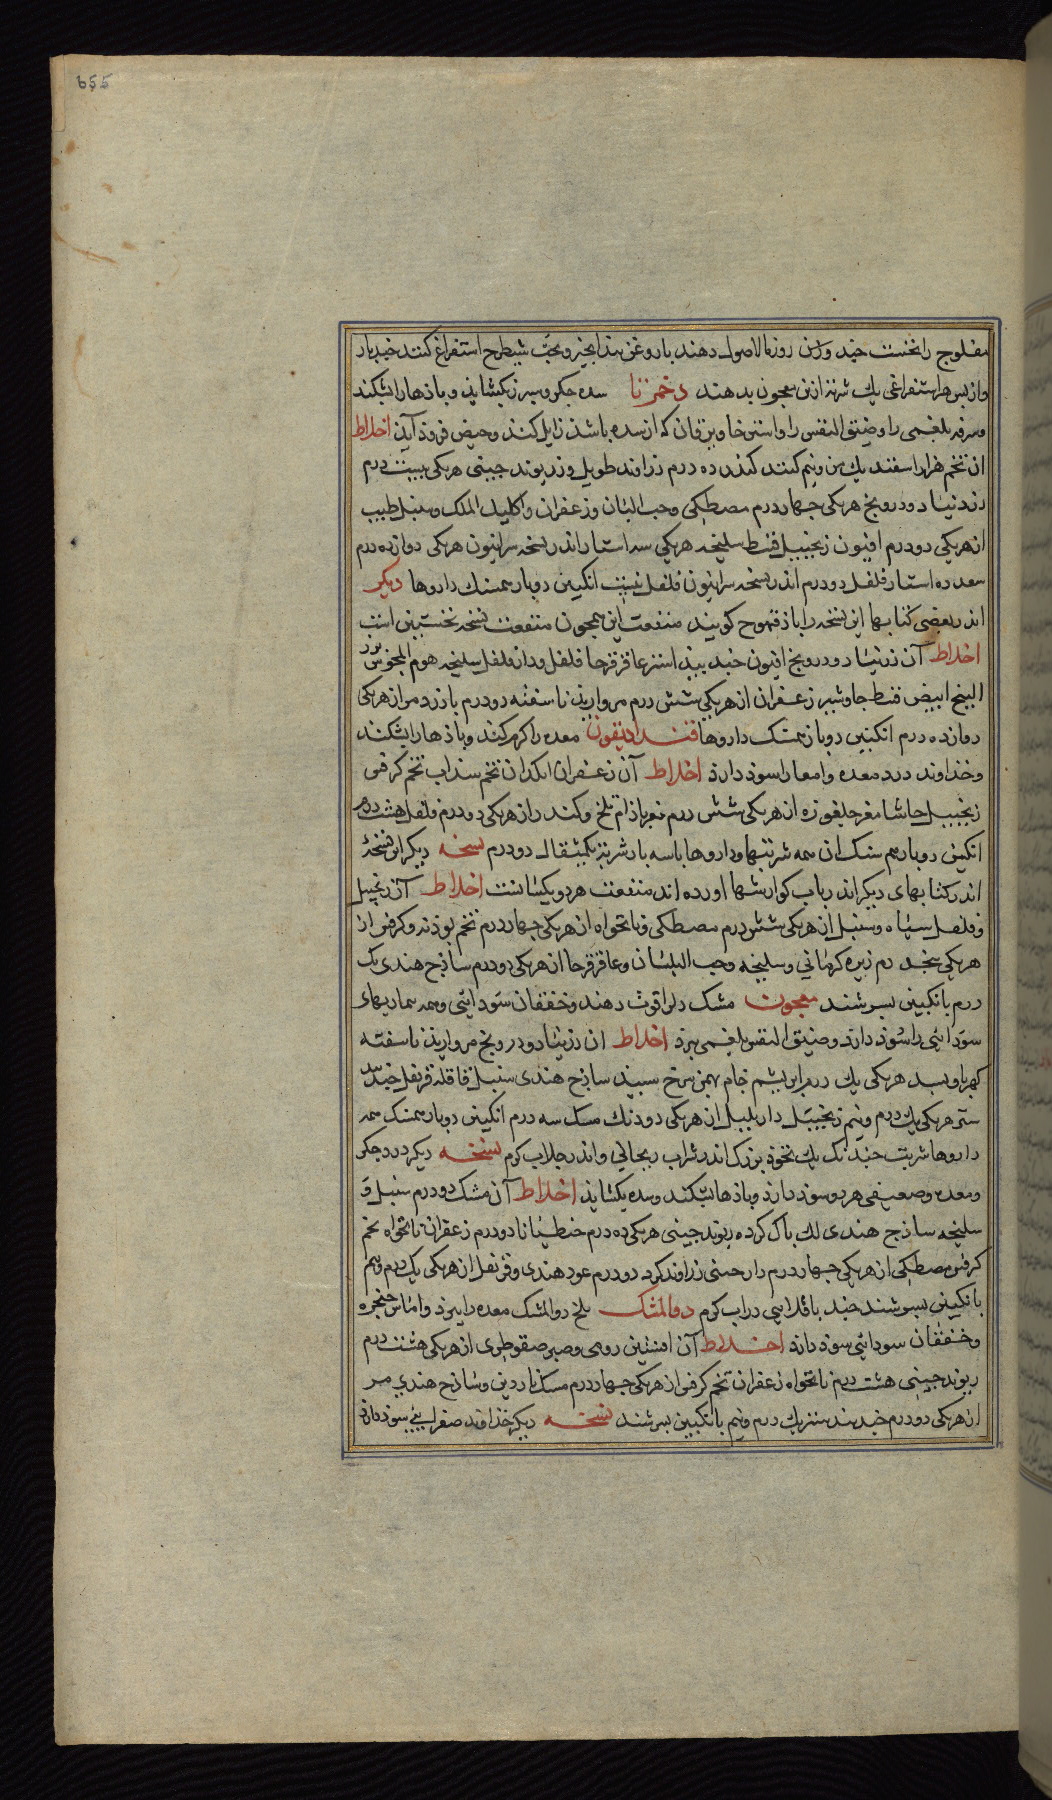 655
مفلوج را نخست چند روز ماء الاصول دهند با روغن بیدانجیر و بحب شیطرج استفراغ کنند چند بار
و از پس هر استفراغی یک شربت ازین معجون بدهند دحمرثا سده جکر و سپرز بکشاید و باذها را بشکند
و سرفه بلغمی را و ضیق النفس را و استسقا و یرقان که از سده باشد زایل کند و حیض فروذ آید اخلاط
ان تخم هزار اسفند یک من و نیم کنند کندر ده درم زراوند طویل و ریوند جینی هریکی بیست درم
زرنباد درونج هریکی جهار درم مصطکی و حب البلسان و زعفران و اکلیل الملک و سنبل طیب
از هریکی دو درم افیون زنجبیل قسط سلیخه هریکی سه استار اندر نسخه سرابیون هریکی دوازده درم
سعد ده استار فلفل دو درم اندر نسخه سرابیون فلفل نیست انکبین دو بار همسنک داروها دیکر
اندر بعضی کتابها این نسخه را باذ قمهوح کویند منفعت این همجون منفعت نسخه نخستین است
اخلاط آن زرنباد درونج افیون جند بیدستر عاقرقرحا فلفل و دارفلفل سلیخه هوم المجوس بزر
البنج ابیض قسط جاوشیر زعفران از هریکی شش درم مروارید ناسفته دو درم بارزد مر از هریکی
دوازده درم انکبین دو بار همسنک داروها قنداذیقون معده را کرم کند و باذها را بشکند
و خذاوند درد معده و امعا را سوذ دارد اخلاط آن زعفران انکدان تخم سنداب تخم کرفس
زنجبیل حاشا مغز جلغوزه از هریکی شش درم مغز باذام تلخ و کندر از هریکی دو درم فلفل هشت درم
انکبین دو بار هم سنک ان همه شربتها و داروها با سه بار شربتی یکمثقال دو درم نسخه دیکر این نسخه
اندر کتابهای دیکر اندر باب کوارشها اورده اند منفعت هر دو یکسانست اخلاط آن زنجبیل
و فلفل سیاه و سنبل از هریکی شش درم مصطکی و نانخواه از هریکی جهار درم تخم بوذنه و کرفس از
هریکی پنج درم زیره کرمانی و سلیخه و حب البلسان و عاقرقرحا از هریکی دو درم ساذج هندی یک
درم بانکبین بسرشند معجون مشک دل را قوت دهد و خفقان سودایی و همه بیماریهای
سودایی را سوذ دارد و ضیق النفس بلغمی ببرد اخلاط ان زرنباد درونج مروارید ناسفته
کهربا و بسد هریکی یک درم ابریشم خام بهمن سرخ سپید ساذج هندی سنبل قاقله قرنفل جندبید
ستر هریکی یک درم و نیم زنجبیل دارپلپل از هریکی دو دنک مسک سه درم انکبین دو بار همسنک همه
داروها شربت جند یک نخوذ بزرک اندر شراب ریحانی و اندر جلاب کرم نسخه دیکر درد جکر
و معده و ضعیفی هر دو سوذ دارد و باذها بشکند و سده بکشاید اخلاط آن مشک دو درم سنبل و
سلیخه ساذج هندی لک باک کرده ریوند جینی هریکی ده درم جنطیانا دو درم زعفران نانخواه تخم
کرفس مصطکی از هریکی جهار درم دارجینی زراوند کرد دو درم عود هندی و قرنفل از هریکی یک درم و نیم
بانکبین بسرشند جند باقلایی در اب کرم دوالمشک تلخ دوالمشک معده را ببرد و اماس حنجره
و خفقان سودایی سوذ دارد اخلاط آن افسنتین رومی و صبر صقوطری از هریکی هشت درم
ریوند جینی هشت درم نانخواه زعفران تخم کرفس از هریکی جهار درم مسک ناردین و ساذج هندی مر
از هریکی دو درم جند بیدستر یک درم و نیم بانکبین بسرشند نسخه دیکر خذاوند صفرایی سوذ دارد